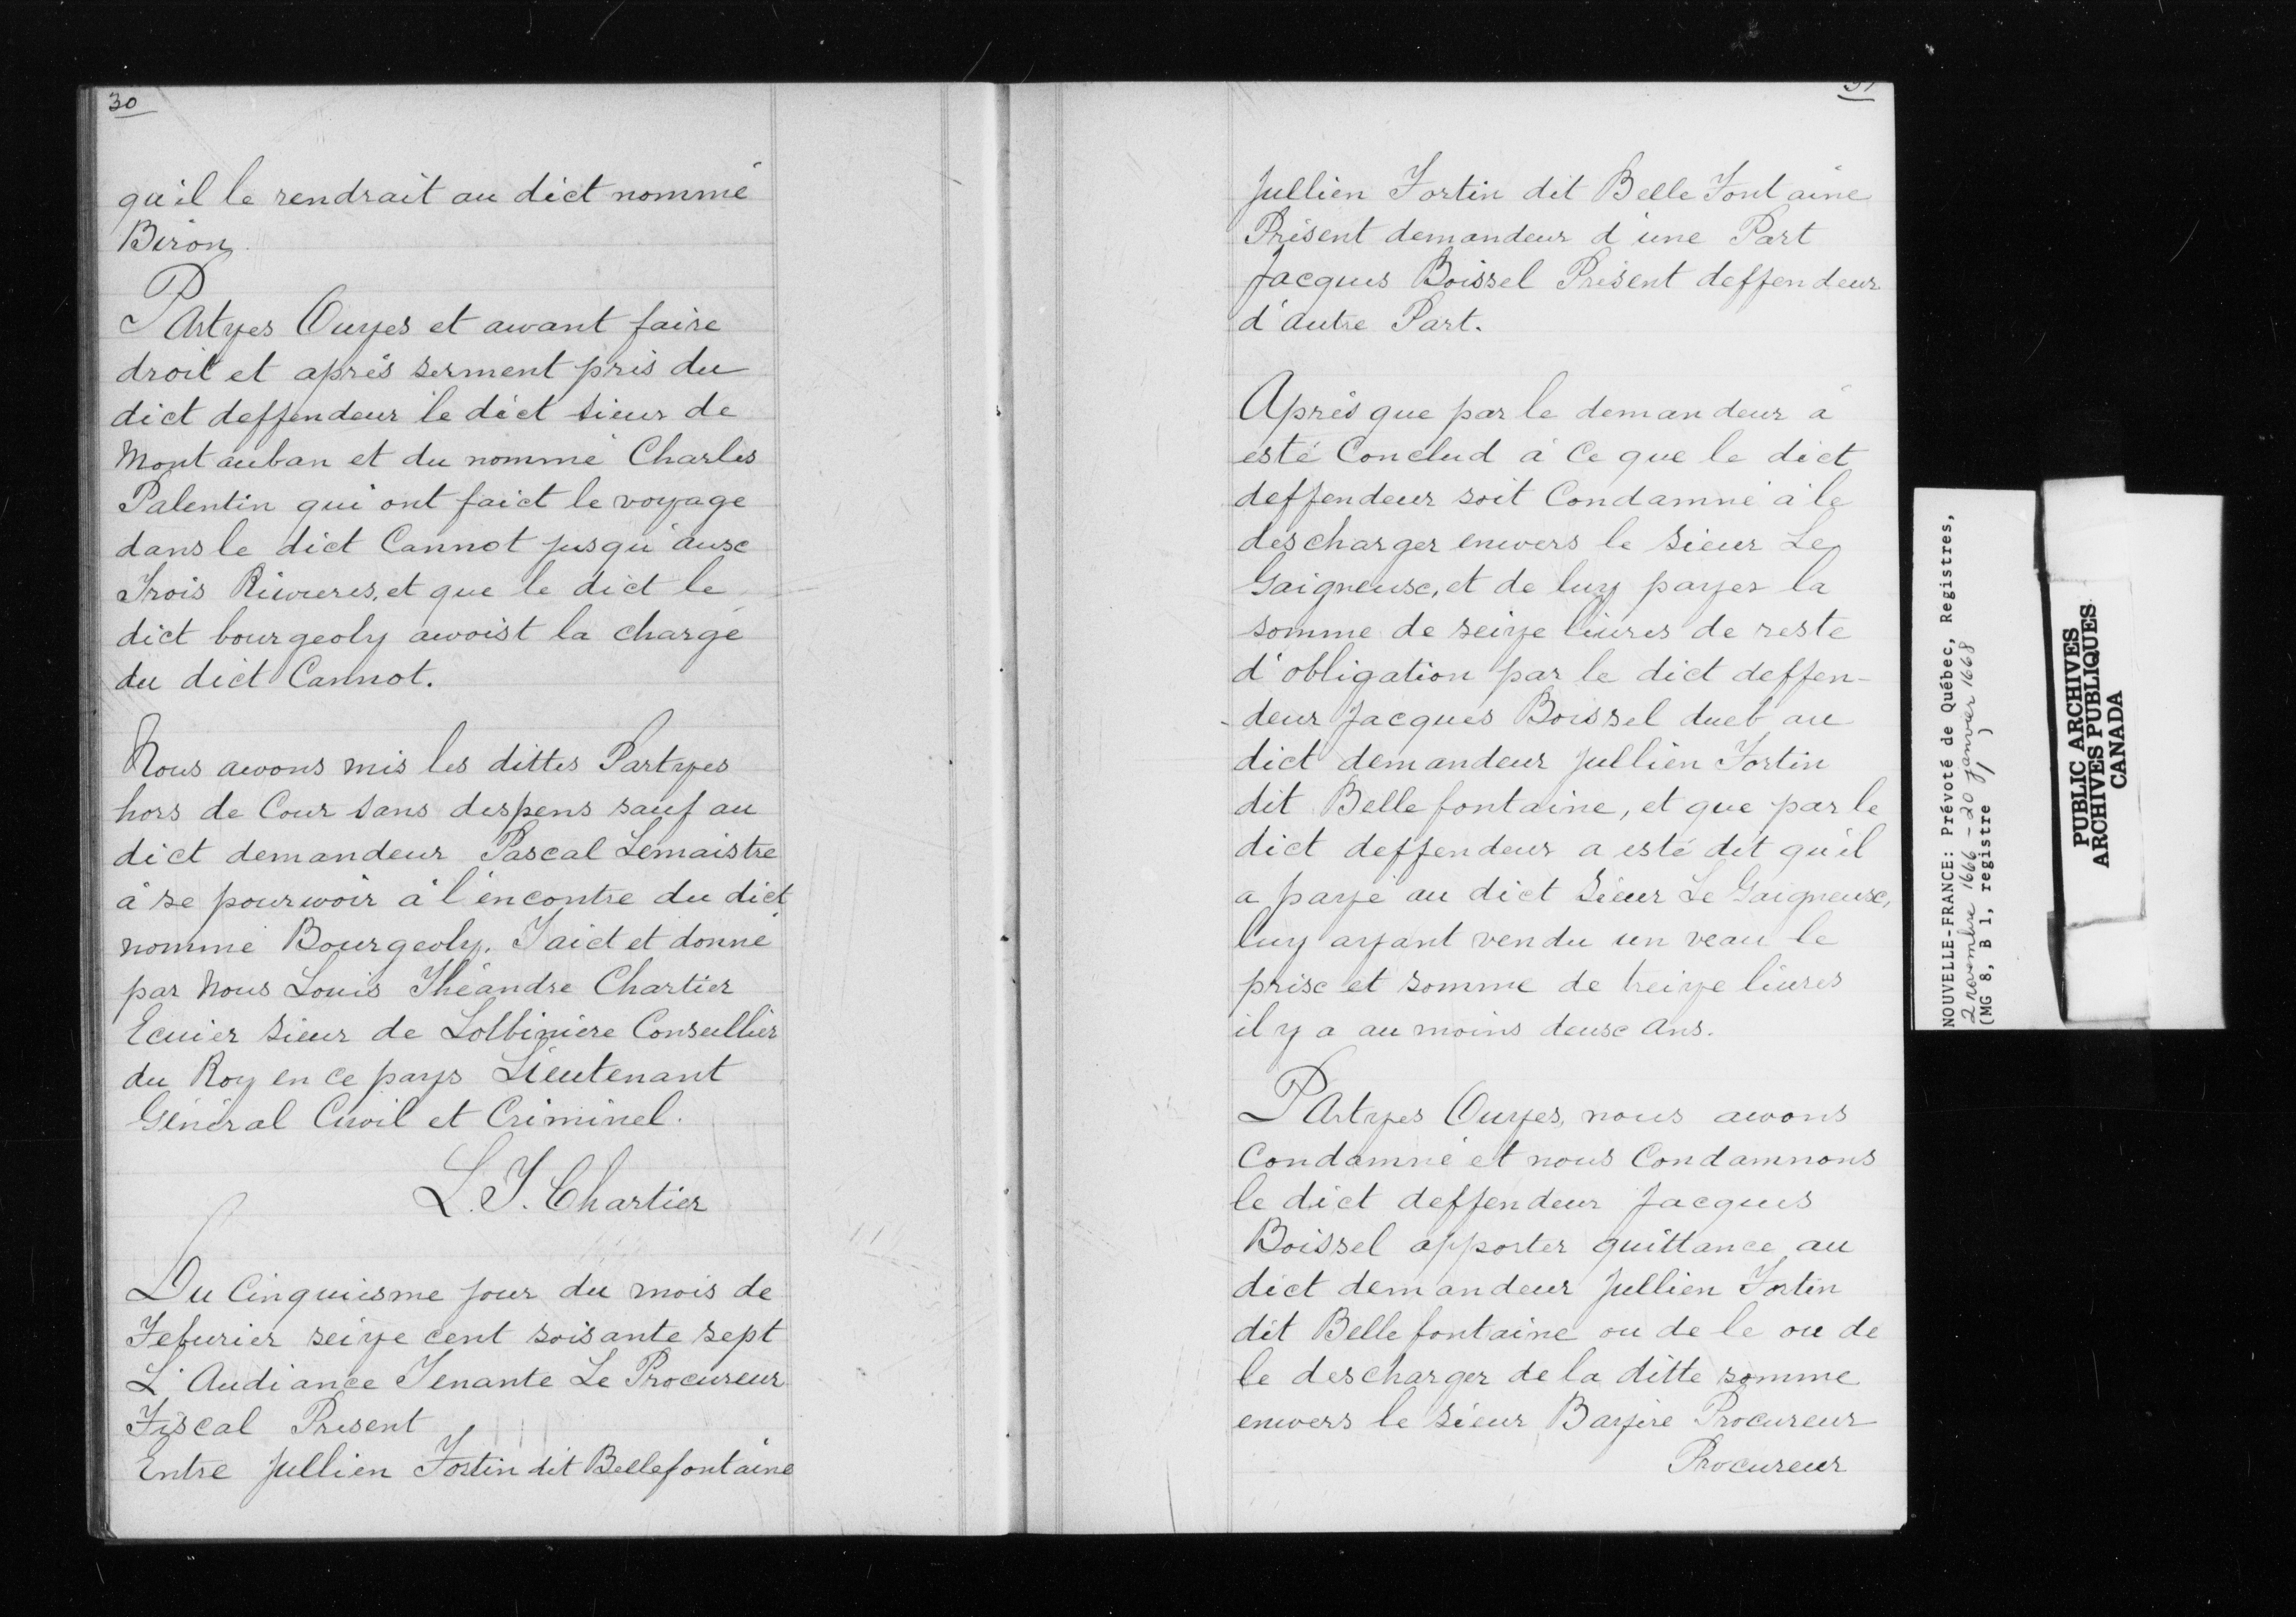 30
qu'il le rendrait au dict nommé
Biron.
PArtyes Ouyes et avant faire
droit et aprés serment pris du
dict deffendeur le dict sieur de
Montauban et du nommé Charles
Palentin qui ont faict le voyage
dans le dict Cannot jusqu'aux
Trois Rivieres, et que le dict le
dict bourgeoly avoist la charge
du dict Cannot.
Nous avons mis les dittes Partyes
hors de Cour sans despens sauf au
dict demandeur Pascal Lemaistre
à se pourvoir à l'encontre du dict
nommé Bourgeoly. Faict et donné
par Nous Louis Théandre Chartier
Ecuier Sieur de Lotbiniere Conseillier
du Roy en ce pays Lieutenant
Général Civil et Criminel.
L. T. Chartier
Du Cinquiesme jour du mois de
Feburier seize cent soisante sept
L'Audiance Tenante Le Procureur
Fiscal Present
Entre Jullien Fortin dit Bellefontaine
31
Jullien Fortin dit Belle Fontaine
Présent demandeur d'une Part
Jacques Boissel Présent deffendeur
d'autre Part.
Aprés que par le demandeur à
esté Conclud à Ce que le dict
deffendeur soit Condamné à le
descharger envers le Sieur Le
Gaigneux, et de luy payer la
somme de seize liures de reste
d'obligation par le dict deffen-
-deur Jacques Boissel dueb au
dict demandeur Jullien Fortin
dit Bellefontaine, et que par le
dict deffendeur a esté dit qu'il
a payé au dict Sieur Le Gaigneux,
luy ayant vendu un veau le
prix et somme de treize liures
il y a au moins deux ans.
PArtyes Ouyes, nous avons
Condamné et nous Condamnons
le dict deffendeur Jacques
Boissel apporter quittance au
dict demandeur Jullien Fortin
dit Bellefontaine ou de le ou de
le descharger de la ditte somme
envers le Sieur Bazire Procureur
Procureur
NOUVELLE-FRANCE: Prévoté de Québec, Registres,
2 novembre 1666 - 20 janvier 1668
(MG 8, B 1, registre 1)
PUBLIC ARCHIVES
ARCHIVES PUBLIQUES
CANADA